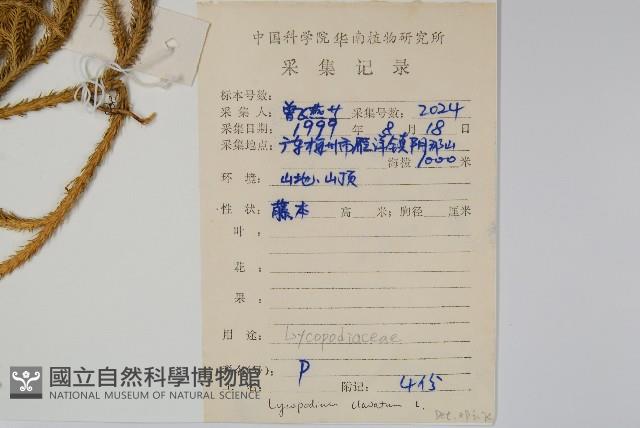 中国科学院华南植物研究所
采集记录
标本号数:
采集人: 曾 采集号数: 2024
采集日期: 1999 年 8 月 18 日
采集地点: 广东梅州市雁洋镇阴那山
海拔 1000 米
环境: 山地、山顶
性状: 藤本 高 米; 胸径 厘米
叶:
花:
果:
用途: Lycopodiaceae
P
附记: 4份
Lycopodium clavatum L.
國立自然科學博物館
NATIONAL MUSEUM OF NATURAL SCIENCE